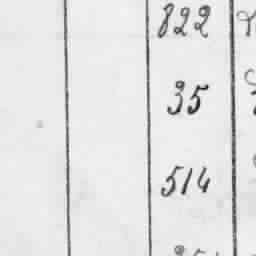 822
35
514